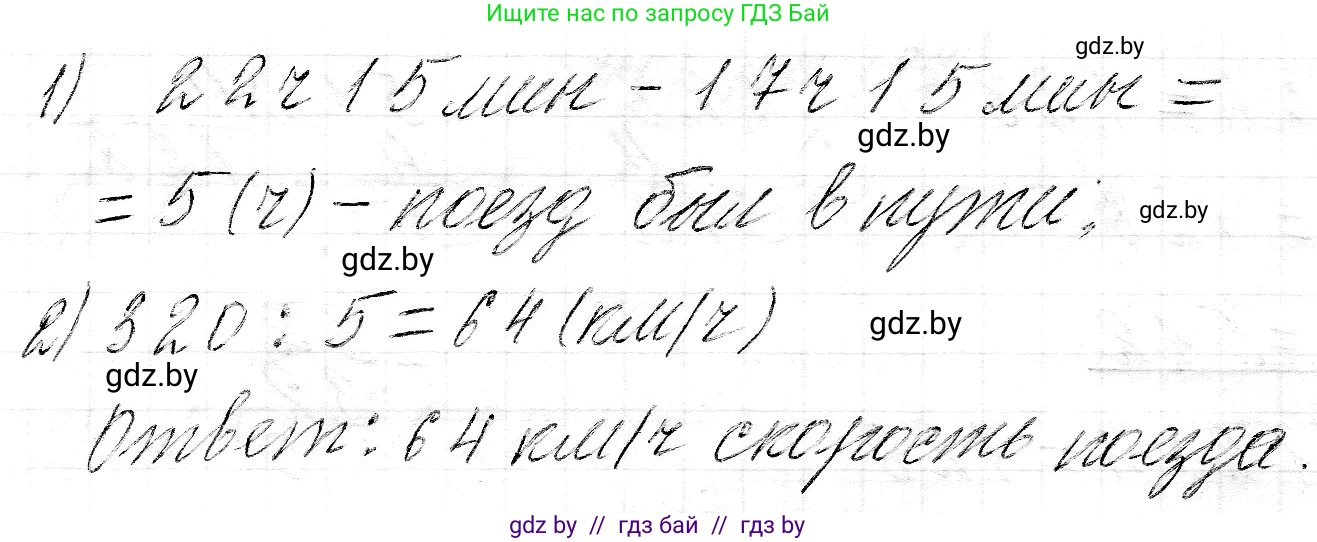 Ищите нас по запросу ГДЗ Бай
gdz.by
1) 22ч 15мин - 17ч 15мин =
gdz.by
= 5(ч) - поезд был в пути;
gdz.by
gdz.by
2) 320 : 5 = 64 (км/ч)
gdz.by
gdz.by
Ответ: 64 км/ч скорость поезда.
gdz by // гдз бай // gdz by